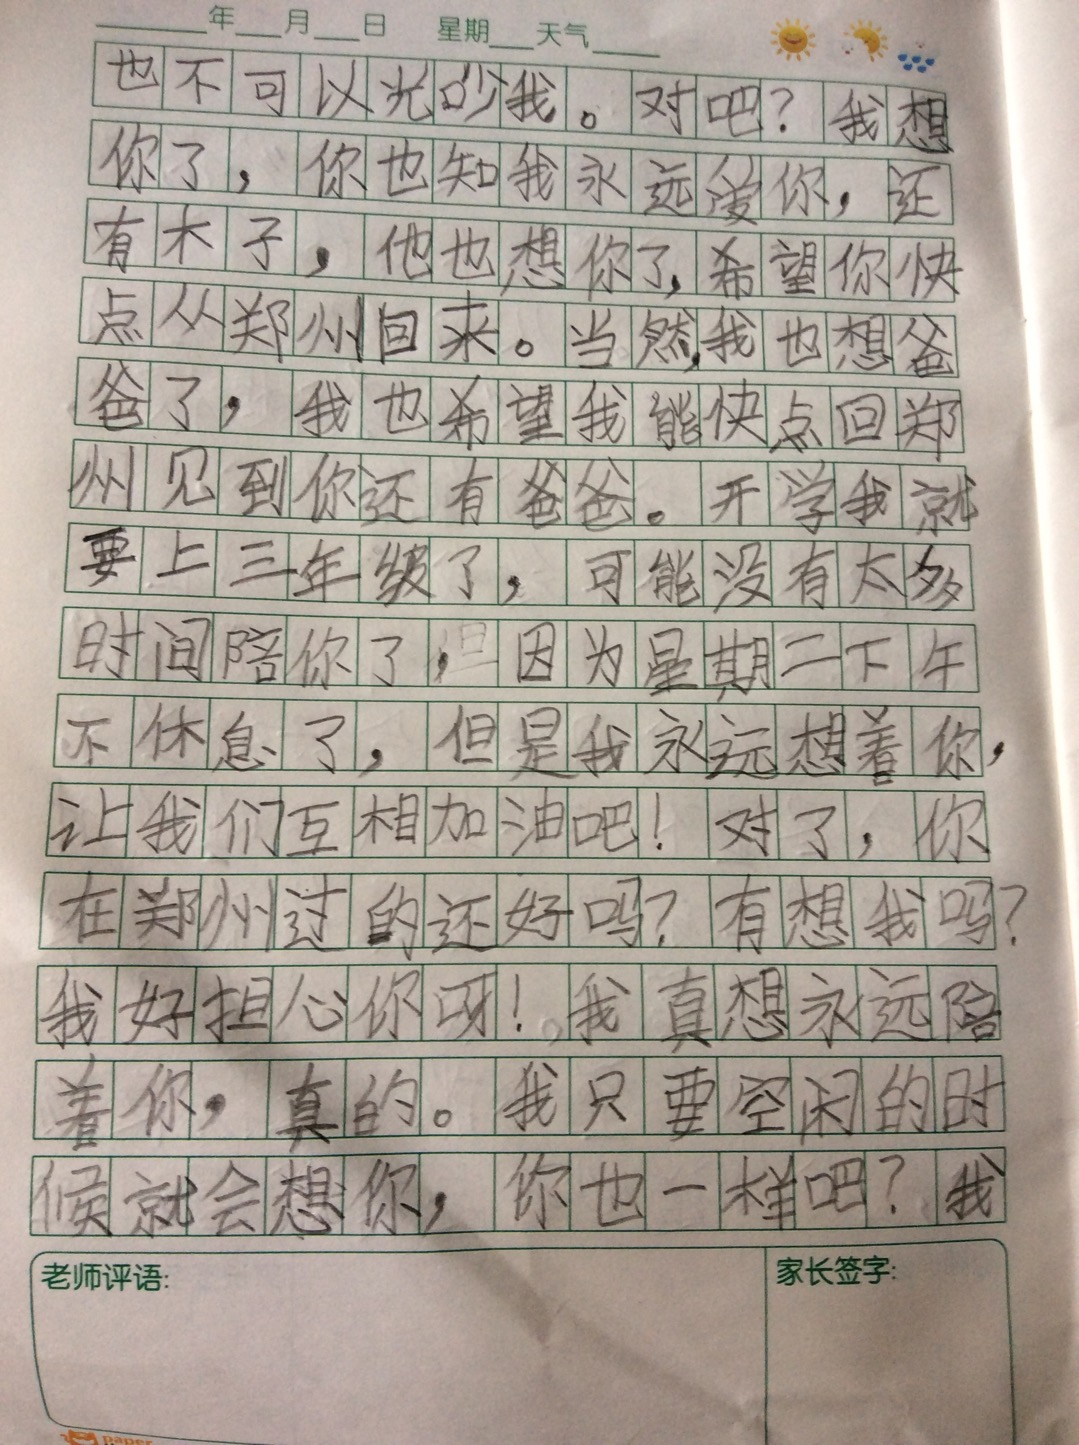 年 月 日 星期 天气
也不可以光吵我。对吧?我想
你了,你也知我永远爱你,还
有木子,他也想你了,希望你快
点从郑州回来。当然,我也想爸
爸了,我也希望我能快点回郑
州见到你还有爸爸。开学我就
要上三年级了,可能没有太多
时间陪你了,但因为星期二下午
不休息了,但是我永远想着你,
让我们互相加油吧!对了,你
在郑州过的还好吗?有想我吗?
我好担心你呀!我真想永远陪
着你,真的。我只要空闲的时
候就会想你,你也一样吧?我
老师评语: 家长签字:
paper